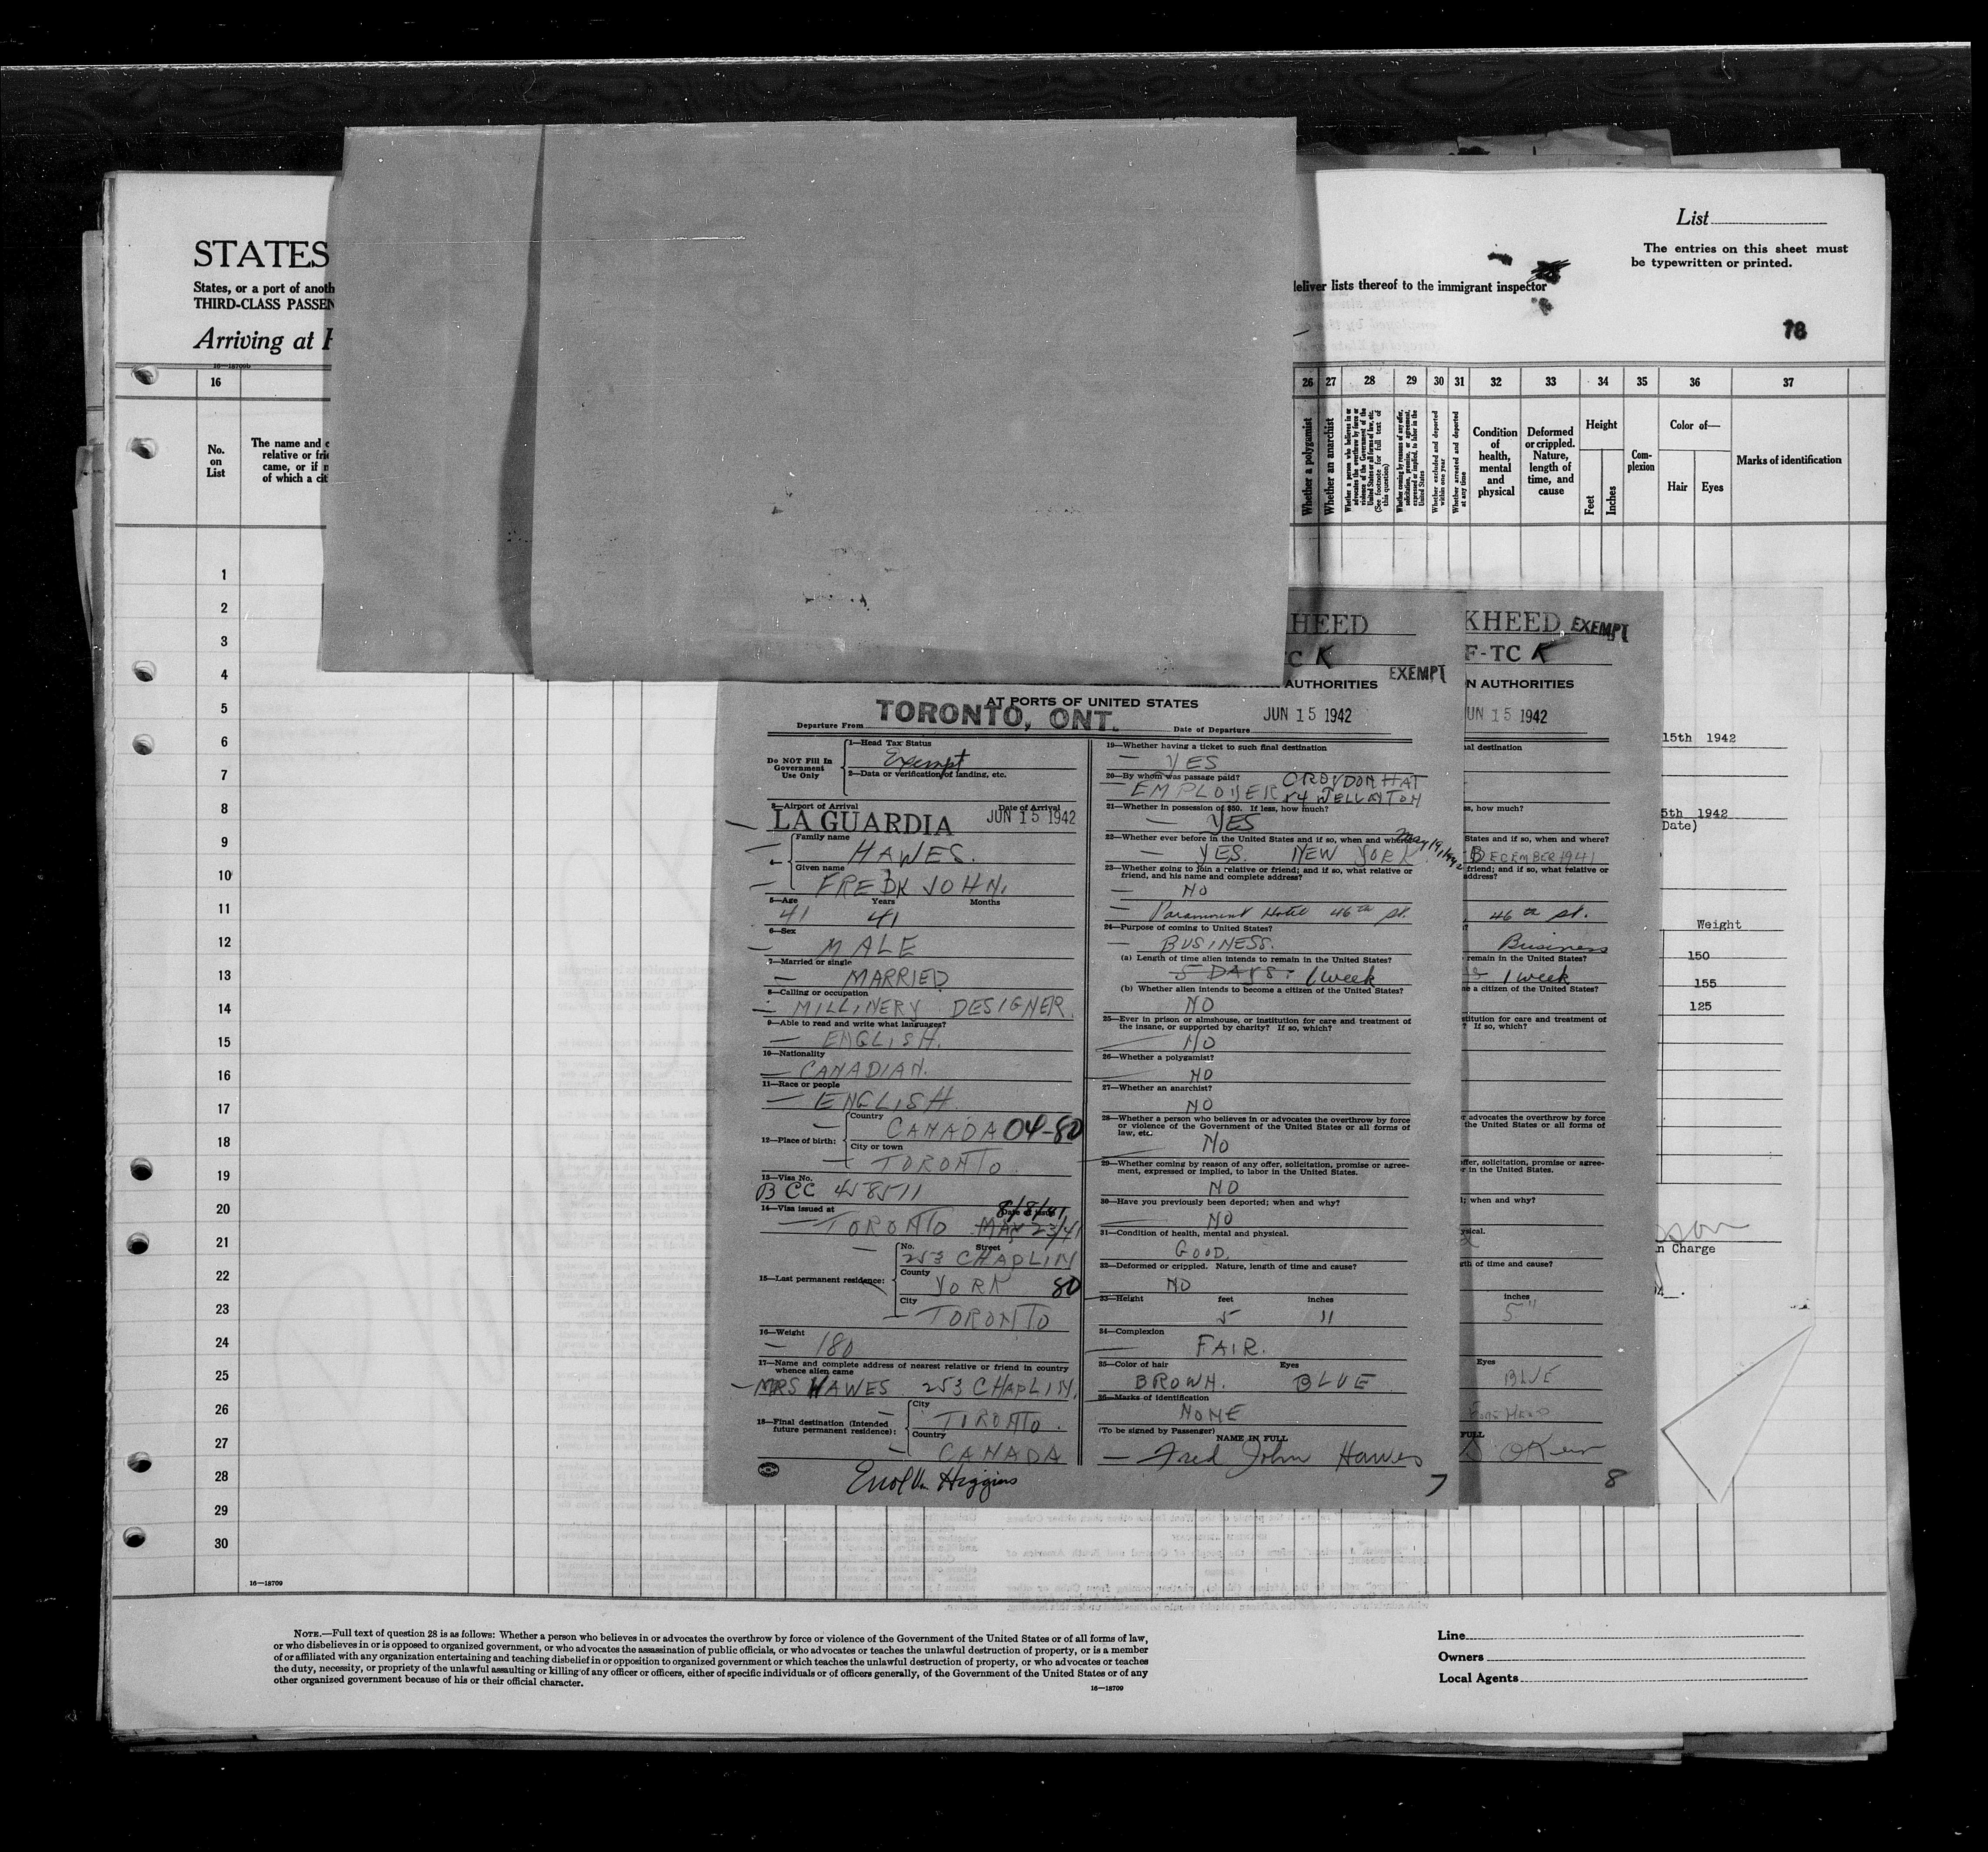 List
The entries on this sheet must
be typewritten or printed.
STATES
States, or a port of anoth
THIRD-CLASS PASSEN
deliver lists thereof to the immigrant inspector
Arriving at
78
16—18709b
16
26 27 28 29 30 31 32 33 34 35 36 37
No.
on
List
The name and c
relative or frie
came, or if n
of which a cit
Whether a polygamist
Whether an anarchist
Whether a person who believes in or
advocates the overthrow by force or
violence of the Government of the
United States or all forms of law, etc.
(See footnote for full text of
this question)
Whether coming by reasons of any offer,
solicitation, promise, or agreement,
expressed or implied, to labor in the
United States
Whether excluded and deported
within one year
Whether arrested and deported
at any time
Condition
of
health,
mental
and
physical
Deformed
or crippled.
Nature,
length of
time, and
cause
Height
Feet
Inches
Com-
plexion
Color of—
Hair
Eyes
Marks of identification
1
2
3
4
5
6
7
8
9
10
11
12
13
14
15
16
17
18
19
20
21
22
23
24
25
26
27
28
29
30
16—18709
HEED
C K
EXEMPT
AUTHORITIES
AT PORTS OF UNITED STATES
Departure From TORONTO, ONT. Date of Departure JUN 15 1942
Do NOT Fill In
Government
Use Only
1—Head Tax Status
Exempt
2—Data or verification of landing, etc.
3—Airport of Arrival Date of Arrival
LA GUARDIA JUN 15 1942
Family name
HAWES.
Given name
FREDK JOHN.
5—Age Years Months
41 41
6—Sex
MALE
7—Married or single
MARRIED
8—Calling or occupation
MILLINERY DESIGNER.
9—Able to read and write what languages?
ENGLISH.
10—Nationality
CANADIAN.
11—Race or people
ENGLISH.
12—Place of birth:
Country
CANADA 04-80
City or town
TORONTO.
13—Visa No.
BCC 458511
14—Visa issued at Date of issue
8/8/41
TORONTO MAY 23/41
15—Last permanent residence:
No. Street
253 CHAPLIN
County
YORK 80
City
TORONTO
16—Weight
180
17—Name and complete address of nearest relative or friend in country
whence alien came
MRS HAWES 253 CHAPLIN.
18—Final destination (Intended
future permanent residence):
City
TORONTO.
Country
CANADA
19—Whether having a ticket to such final destination
YES
20—By whom was passage paid? CROYDON HAT
EMPLOYER 54 WELLGTON
21—Whether in possession of $50. If less, how much?
YES
22—Whether ever before in the United States and if so, when and where?
YES. NEW YORK. May 19, 1942
23—Whether going to join a relative or friend; and if so, what relative or
friend, and his name and complete address?
NO
Paramount Hotel 46th St.
24—Purpose of coming to United States?
BUSINESS.
(a) Length of time alien intends to remain in the United States?
5 DAYS. 1 week
(b) Whether alien intends to become a citizen of the United States?
NO
25—Ever in prison or almshouse, or institution for care and treatment of
the insane, or supported by charity? If so, which?
NO
26—Whether a polygamist?
NO
27—Whether an anarchist?
NO
28—Whether a person who believes in or advocates the overthrow by force
or violence of the Government of the United States or all forms of
law, etc.
NO
29—Whether coming by reason of any offer, solicitation, promise or agree-
ment, expressed or implied, to labor in the United States.
NO
30—Have you previously been deported; when and why?
NO
31—Condition of health, mental and physical.
GOOD.
32—Deformed or crippled. Nature, length of time and cause?
NO
33—Height feet inches
5 11
34—Complexion
FAIR.
35—Color of hair Eyes
BROWN. BLUE
36—Marks of identification
NONE
(To be signed by Passenger)
NAME IN FULL
Fred John Hawes
Higgins
7
KHEED EXEMPT
F-TC K
N AUTHORITIES
UN 15 1942
al destination
s, how much?
States and if so, when and where?
DECEMBER 1941
friend; and if so, what relative or
address?
46th St.
Business
remain in the United States?
1 week
e a citizen of the United States?
stitution for care and treatment of
? If so, which?
r advocates the overthrow by force
the United States or all forms of
offer, solicitation, promise or agree-
r in the United States.
; when and why?
ysical.
gth of time and cause?
inches
5"
Eyes
BLUE
FOREHEAD
FULL
8
15th 1942
5th 1942
Date)
Weight
150
155
125
n Charge
NOTE.—Full text of question 28 is as follows: Whether a person who believes in or advocates the overthrow by force or violence of the Government of the United States or of all forms of law,
or who disbelieves in or is opposed to organized government, or who advocates the assassination of public officials, or who advocates or teaches the unlawful destruction of property, or is a member
of or affiliated with any organization entertaining and teaching disbelief in or opposition to organized government or which teaches the unlawful destruction of property, or who advocates or teaches
the duty, necessity, or propriety of the unlawful assaulting or killing of any officer or officers, either of specific individuals or of officers generally, of the Government of the United States or of any
other organized government because of his or their official character.
16—18709
Line
Owners
Local Agents